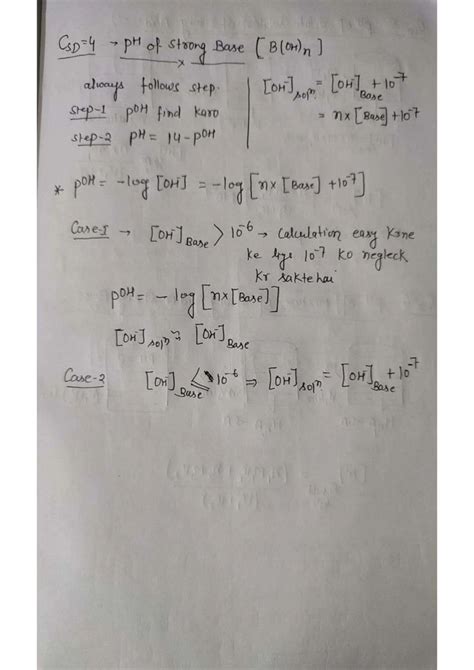 CSD=4 → pH of Strong Base [B(OH)n]
always follows step.
Step-1 pOH find karo
Step-2 pH = 14-pOH
[OH]soln = [OH]Base + 10^-7
= n×[Base]+10^-7
* pOH = -log[OH] = -log[n×[Base]+10^-7]
Case-1 → [OH]Base > 10^-6 → Calculation easy Krne
ke liye 10^-7 KO negleck
Kr saktehai
pOH = -log[n×[Base]]
[OH]soln ≈ [OH]Base
Case-2 [OH]Base ≤ 10^-6 ⇒ [OH]soln = [OH]Base + 10^-7